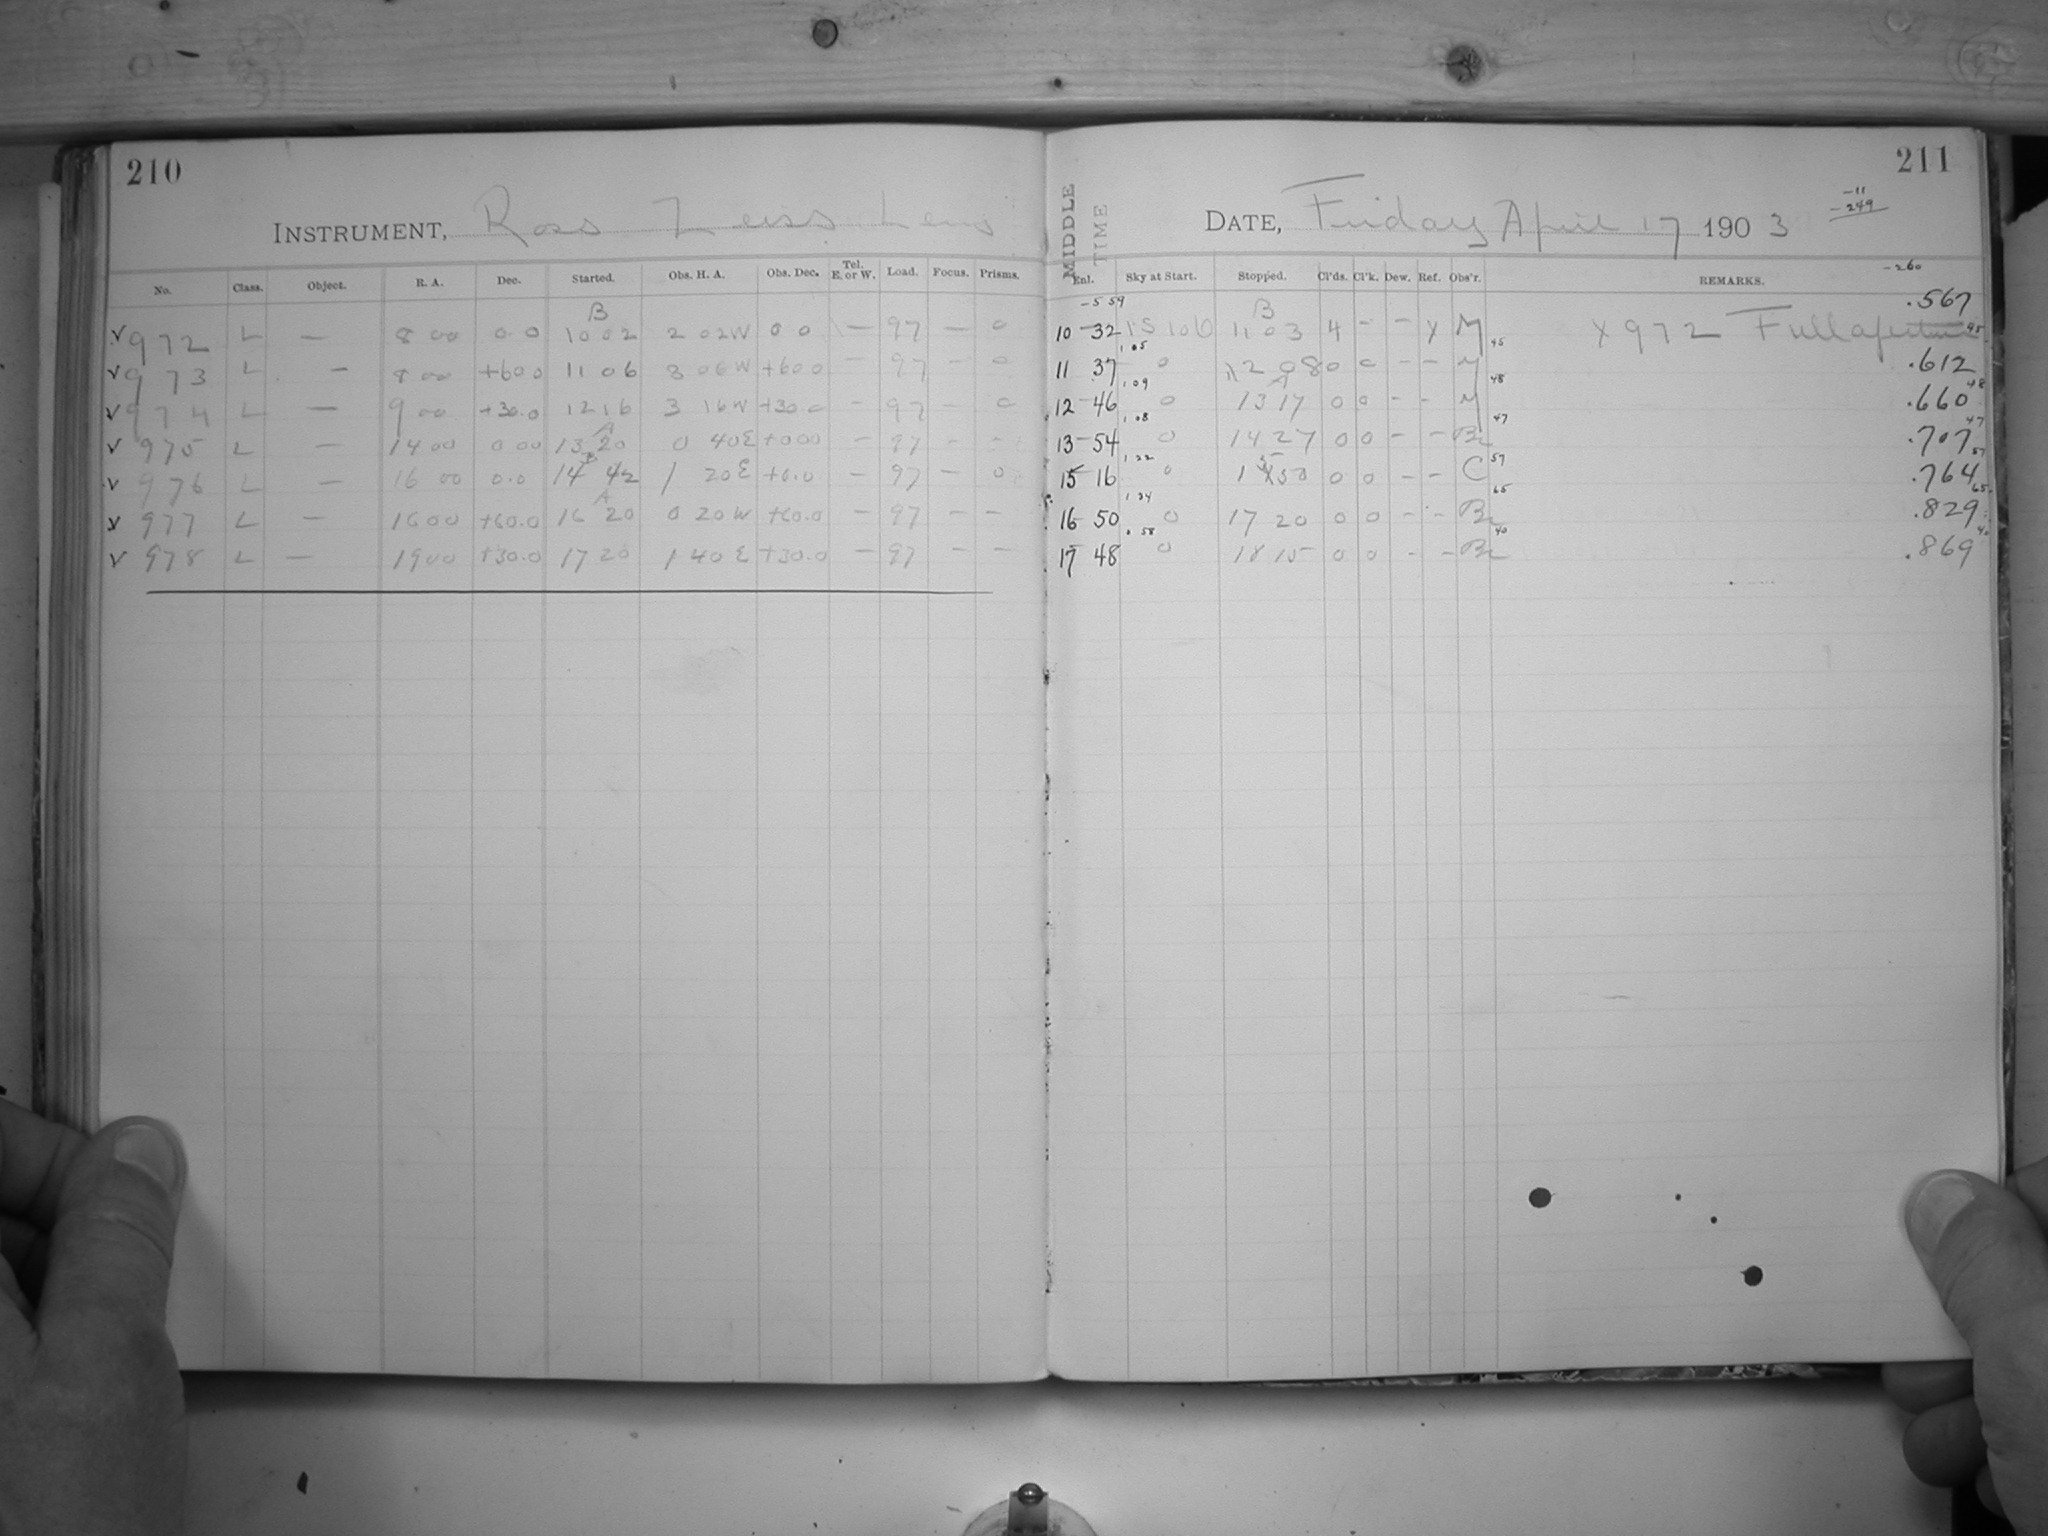 210
INSTRUMENT, Ross Zeiss Lens
No. Class. Object. R. A. Dec. Started. Obs. H. A. Obs. Dec. Tel. E. or W. Load. Focus. Prisms.
B
v 972 L — 8 00 0.0 10 02 2 02W 0 0 — 97 — 0
v 973 L — 8 00 +60 0 11 06 3 06W +60 0 — 97 — 0
v 974 L — 9 00 +30.0 12 16 3 16W +30.0 — 97 — 0
A
v 975 L — 14 00 0 00 13 20 0 40E +0 00 — 97 — —
B
v 976 L — 16 00 0.0 14 42 1 20E +0.0 — 97 — 0
A
v 977 L — 16 00 +60.0 16 20 0 20W +60.0 — 97 — —
v 978 L — 19 00 +30.0 17 20 1 40E +30.0 — 97 — —
211
MIDDLE TIME
DATE, Friday April 17 1903
-11
-249
-260
Enl. Sky at Start. Stopped. Cl'ds. Cl'k. Dew. Ref. Obs'r. REMARKS.
-5 59 B .567
10-32 15 106 11 03 4 - - X M X 972 Full aperture 45
1 05 45
11 37 0 12 08 0 0 - M .612
1 09 A 48 48
12-46 0 13 17 0 0 - - M .660
1 08 47 47
13-54 0 14 27 0 0 - - Br .707
1 22 57 57
15 16 0 1 50 0 0 - - C .764
1 34 65 65
16 50 0 17 20 0 0 - - Br .829
0 58 40 40
17 48 0 18 15 0 0 - - Br .869